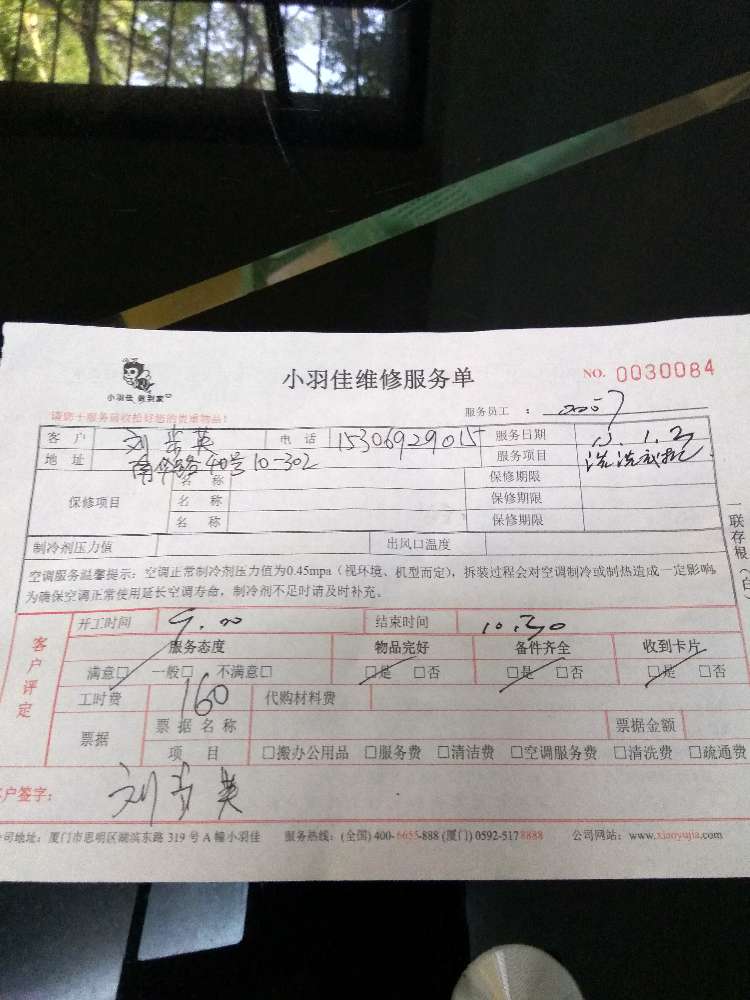 小羽佳 做到家
小羽佳维修服务单
NO. 0030084
请您于服务前收拾好您的贵重物品!
服务员工：
客户 刘步英 电话 15306929015 服务日期
地址 40号10-302 服务项目 洗洗衣机
保修项目 名称 保修期限
名称 保修期限
名称 保修期限
制冷剂压力值 出风口温度
空调服务温馨提示：空调正常制冷剂压力值为0.45mpa（视环境、机型而定），拆装过程会对空调制冷或制热造成一定影响，
为确保空调正常使用延长空调寿命，制冷剂不足时请及时补充。
一联存根（白）
客户评定
开工时间 9.00 结束时间 10.30
服务态度 物品完好 备件齐全 收到卡片
满意□ 一般□ 不满意□ □是 □否 □是 □否 □是 □否
工时费 160 代购材料费
票据 票据名称 票据金额
项目 □搬办公用品 □服务费 □清洁费 □空调服务费 □清洗费 □疏通费
户签字： 刘步英
司地址：厦门市思明区湖滨东路 319 号 A 幢小羽佳 服务热线：(全国) 400-6655-888 (厦门) 0592-5178888 公司网站：www.xiaoyujia.com